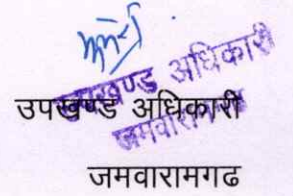 उपखण्ड अधिकारी
जमवारामगढ
उपखण्ड अधिकारी
जमवारामगढ